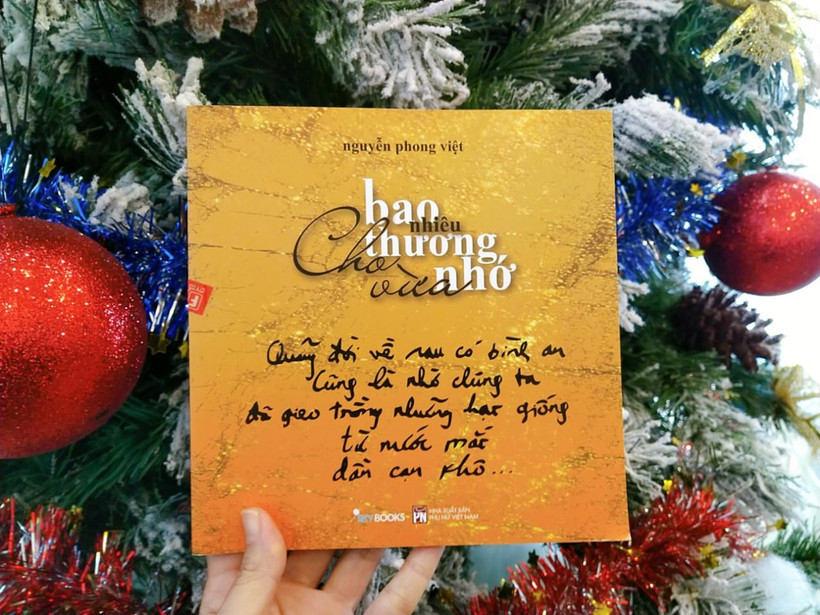 nguyễn phong việt
bao
nhiêu
Cho thương
vừa nhớ
Quãng đời về sau có bình an
Cũng là nhờ chúng ta
đã gieo trồng những hạt giống
từ nước mắt
dần cạn khô...
SKYBOOKS
PN
NHÀ XUẤT BẢN
PHỤ NỮ VIỆT NAM